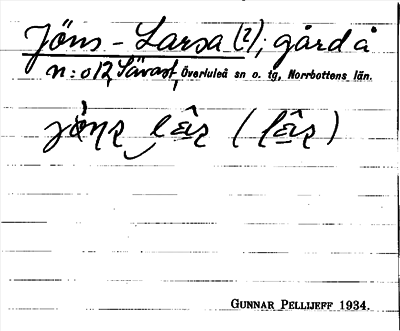 Jöns-Larsa (2); gård å
n:o 12 Sävast, Överluleå sn o. tg, Norrbottens län.
GUNNAR PELLIJEFF 1934.